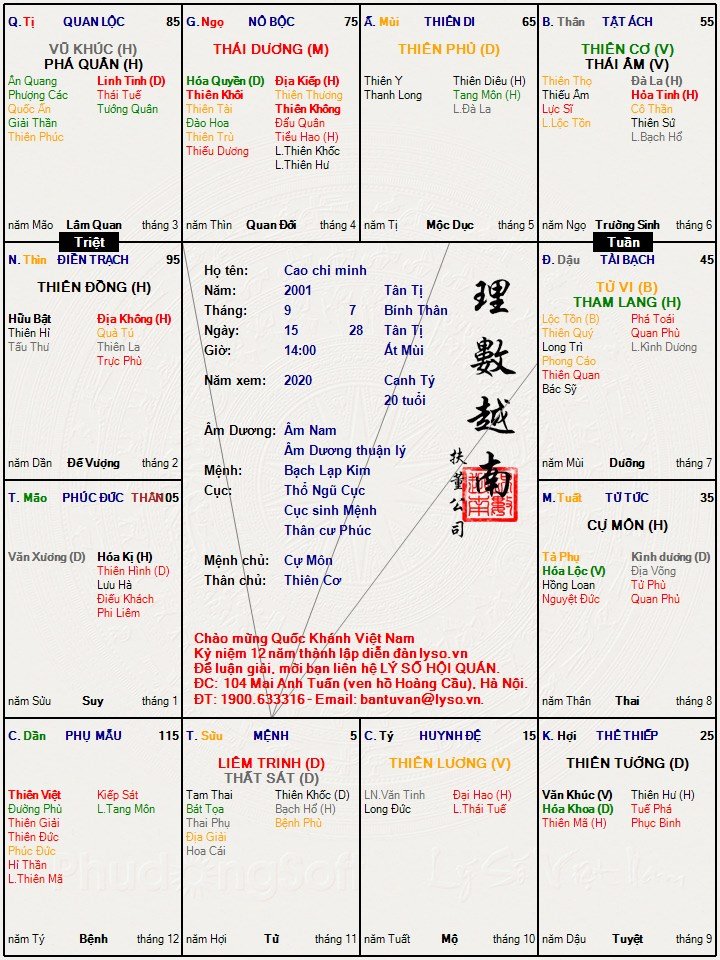 Q. Tị QUAN LỘC 85
VŨ KHÚC (H)
PHÁ QUÂN (H)
Ân Quang Linh Tinh (D)
Phượng Các Thái Tuế
Quốc Ấn Tướng Quân
Giải Thần
Thiên Phúc
năm Mão Lâm Quan tháng 3
G. Ngọ NÔ BỘC 75
THÁI DƯƠNG (M)
Hóa Quyền (D) Địa Kiếp (H)
Thiên Khôi Thiên Thương
Thiên Tài Thiên Không
Đào Hoa Đẩu Quân
Thiên Trù Tiểu Hao (H)
Thiếu Dương L.Thiên Khốc
L.Thiên Hư
năm Thìn Quan Đới tháng 4
Ấ. Mùi THIÊN DI 65
THIÊN PHỦ (D)
Thiên Y Thiên Diêu (H)
Thanh Long Tang Môn (H)
L.Đà La
năm Tị Mộc Dục tháng 5
B. Thân TẬT ÁCH 55
THIÊN CƠ (V)
THÁI ÂM (V)
Thiên Thọ Đà La (H)
Thiếu Âm Hỏa Tinh (H)
Lực Sĩ Cô Thần
L.Lộc Tồn Thiên Sứ
L.Bạch Hổ
năm Ngọ Trường Sinh tháng 6
Triệt
Tuần
N. Thìn ĐIỀN TRẠCH 95
THIÊN ĐỒNG (H)
Hữu Bật Địa Không (H)
Thiên Hỉ Quả Tú
Tấu Thư Thiên La
Trực Phù
năm Dần Đế Vượng tháng 2
Họ tên: Cao chi minh
Năm: 2001 Tân Tị
Tháng: 9 7 Bính Thân
Ngày: 15 28 Tân Tị
Giờ: 14:00 Ất Mùi
Năm xem: 2020 Canh Tý
20 tuổi
Âm Dương: Âm Nam
Âm Dương thuận lý
Mệnh: Bạch Lạp Kim
Cục: Thổ Ngũ Cục
Cục sinh Mệnh
Thân cư Phúc
Mệnh chủ: Cự Môn
Thân chủ: Thiên Cơ
理數越南
扶董公司
Chào mừng Quốc Khánh Việt Nam
Kỷ niệm 12 năm thành lập diễn đàn lyso.vn
Để luận giải, mời bạn liên hệ LÝ SỐ HỘI QUÁN.
ĐC: 104 Mai Anh Tuấn (ven hồ Hoàng Cầu), Hà Nội.
ĐT: 1900.633316 - Email: bantuvan@lyso.vn.
Đ. Dậu TÀI BẠCH 45
TỬ VI (B)
THAM LANG (H)
Lộc Tồn (B) Phá Toái
Thiên Quý Quan Phù
Long Trì L.Kình Dương
Phong Cáo
Thiên Quan
Bác Sỹ
năm Mùi Dưỡng tháng 7
T. Mão PHÚC ĐỨC THÂN 105
Văn Xương (D) Hóa Kị (H)
Thiên Hình (D)
Lưu Hà
Điếu Khách
Phi Liêm
năm Sửu Suy tháng 1
M. Tuất TỬ TỨC 35
CỰ MÔN (H)
Tả Phụ Kình dương (D)
Hóa Lộc (V) Địa Võng
Hồng Loan Tử Phù
Nguyệt Đức Quan Phủ
năm Thân Thai tháng 8
C. Dần PHỤ MẪU 115
Thiên Việt Kiếp Sát
Đường Phù L.Tang Môn
Thiên Giải
Thiên Đức
Phúc Đức
Hỉ Thần
L.Thiên Mã
năm Tý Bệnh tháng 12
T. Sửu MỆNH 5
LIÊM TRINH (D)
THẤT SÁT (D)
Tam Thai Thiên Khốc (D)
Bát Tọa Bạch Hổ (H)
Thai Phụ Bệnh Phù
Địa Giải
Hoa Cái
năm Hợi Tử tháng 11
C. Tý HUYNH ĐỆ 15
THIÊN LƯƠNG (V)
LN.Văn Tinh Đại Hao (H)
Long Đức L.Thái Tuế
năm Tuất Mộ tháng 10
K. Hợi THÊ THIẾP 25
THIÊN TƯỚNG (D)
Văn Khúc (V) Thiên Hư (H)
Hóa Khoa (D) Tuế Phá
Thiên Mã (H) Phục Binh
năm Dậu Tuyệt tháng 9
Phudongsoft
Lý Số Việt Nam